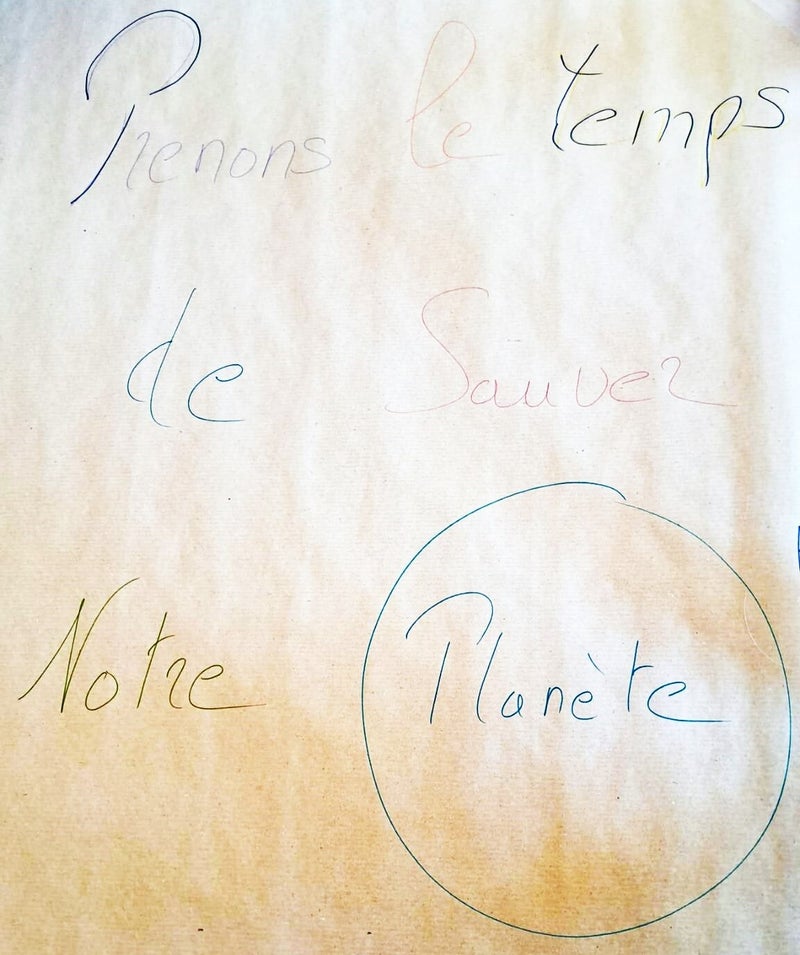 Prenons le temps
de Sauver
Notre Planète